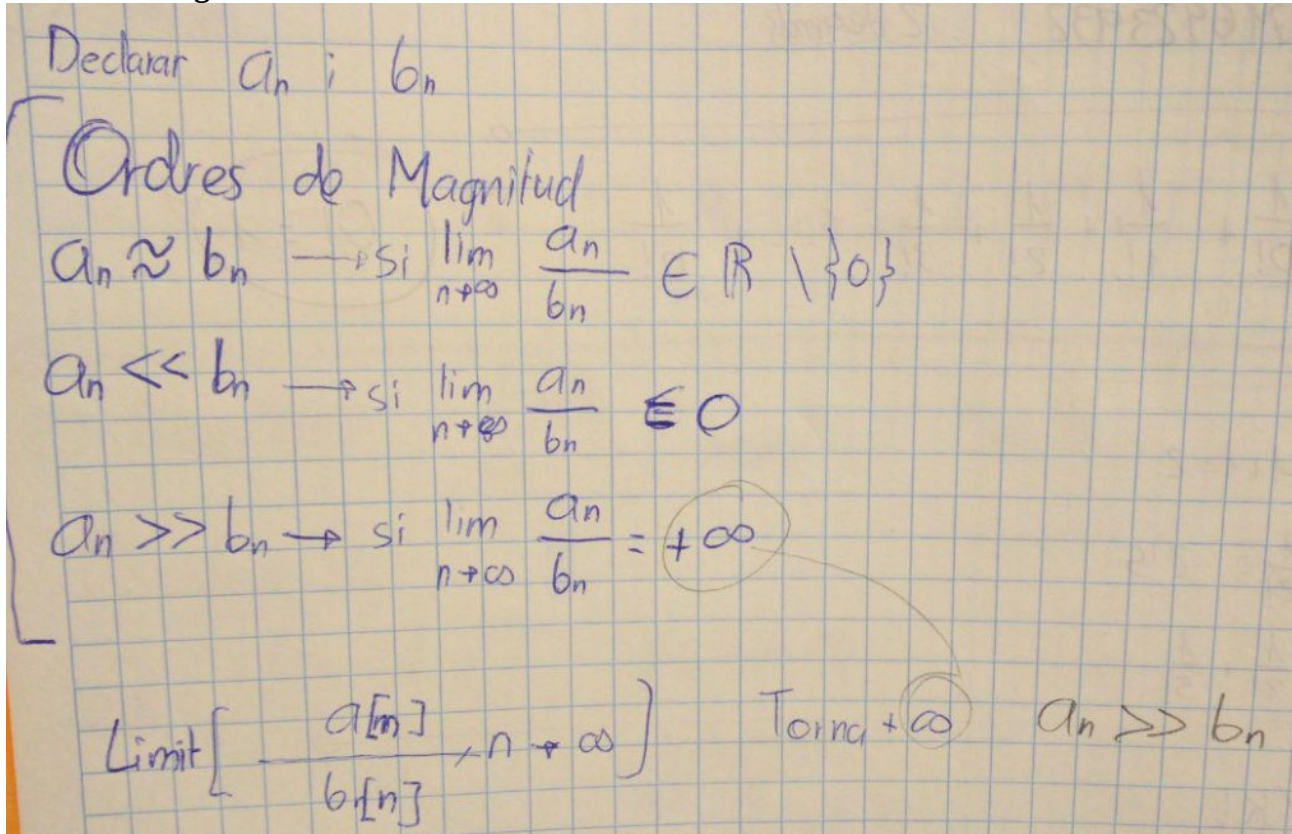 Declarar aₙ i bₙ
Ordres de Magnitud
aₙ ≈ bₙ → si lim n→∞ aₙ/bₙ ∈ ℝ \ {0}
aₙ << bₙ → si lim n→∞ aₙ/bₙ ∈ 0
aₙ >> bₙ → si lim n→∞ aₙ/bₙ = +∞
Limit[a[n]/b[n], n → ∞] Torna +∞ aₙ >> bₙ